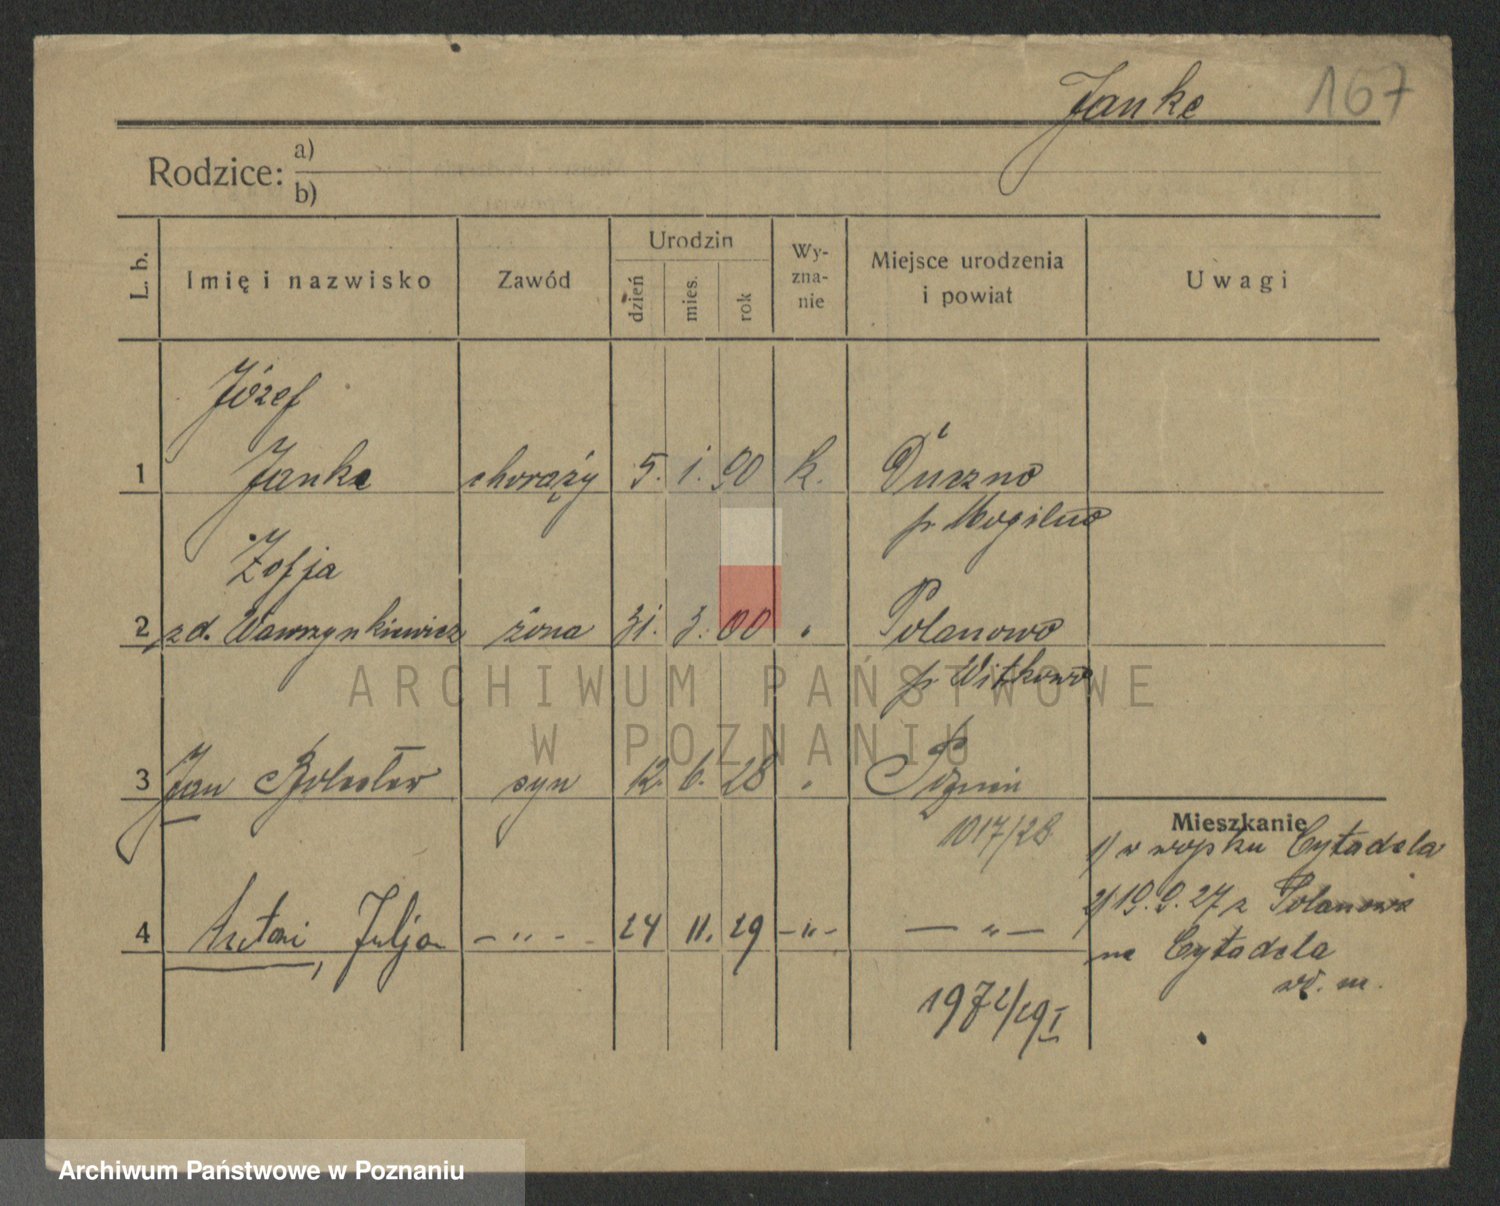 Janke 167
Rodzice: a)
b)
L. b. Imię i nazwisko Zawód Urodzin dzień mies. rok Wy-zna-nie Miejsce urodzenia i powiat Uwagi
Józef
1 Janke chorąży 5. 1. 90 k.
p. Mogilno
Zofja
2 zd. Wawrzynkiewicz żona 31. 3. 00 " Polanowo
p. Witkowo
ARCHIWUM PAŃSTWOWE
W POZNANIU
3 Jan Bolesław syn 12. 6. 28 " Poznań
1017/28
Mieszkanie
1) w wojsku Cytadela
2) 19. 9. 27 z Polanowa
4 Antoni, Juljan — " — 24 11. 29 — " — — " —
na Cytadela
1972/29 I
Archiwum Państwowe w Poznaniu